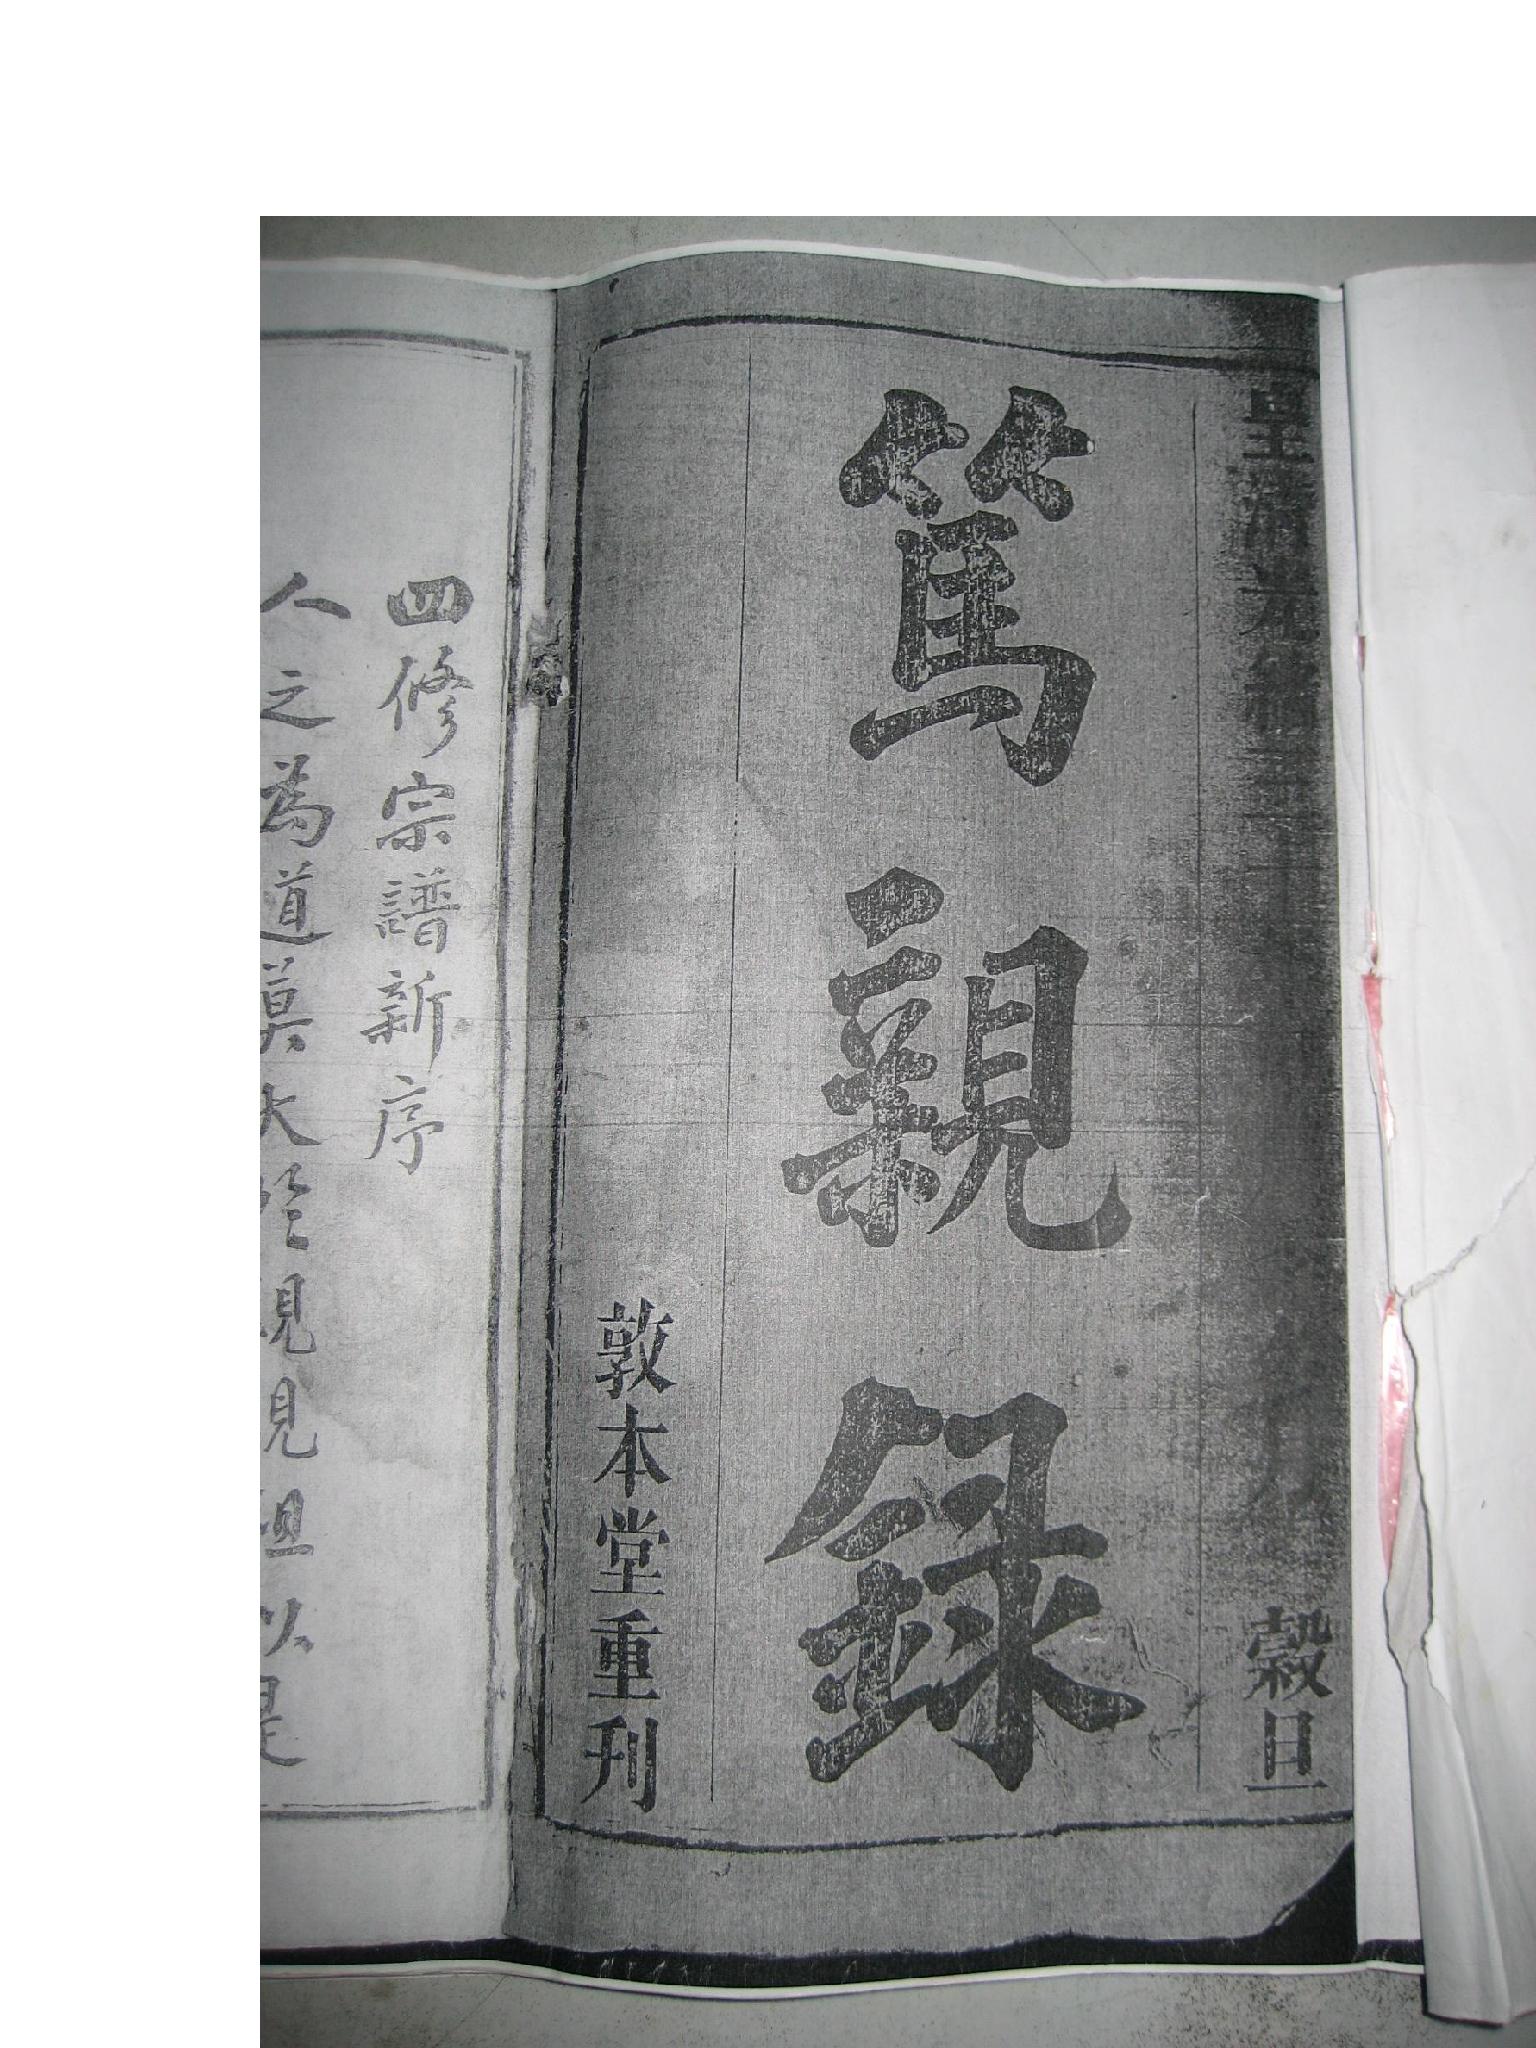 皇清光緒 月 穀旦
篤親錄
敦本堂重刊
四修宗譜新序
人之為道莫大於親親 以是